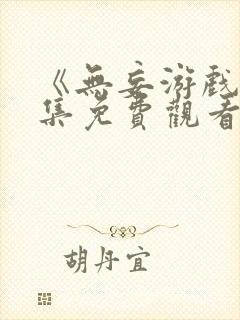 《無妄游戲
集免費觀看
胡丹宜